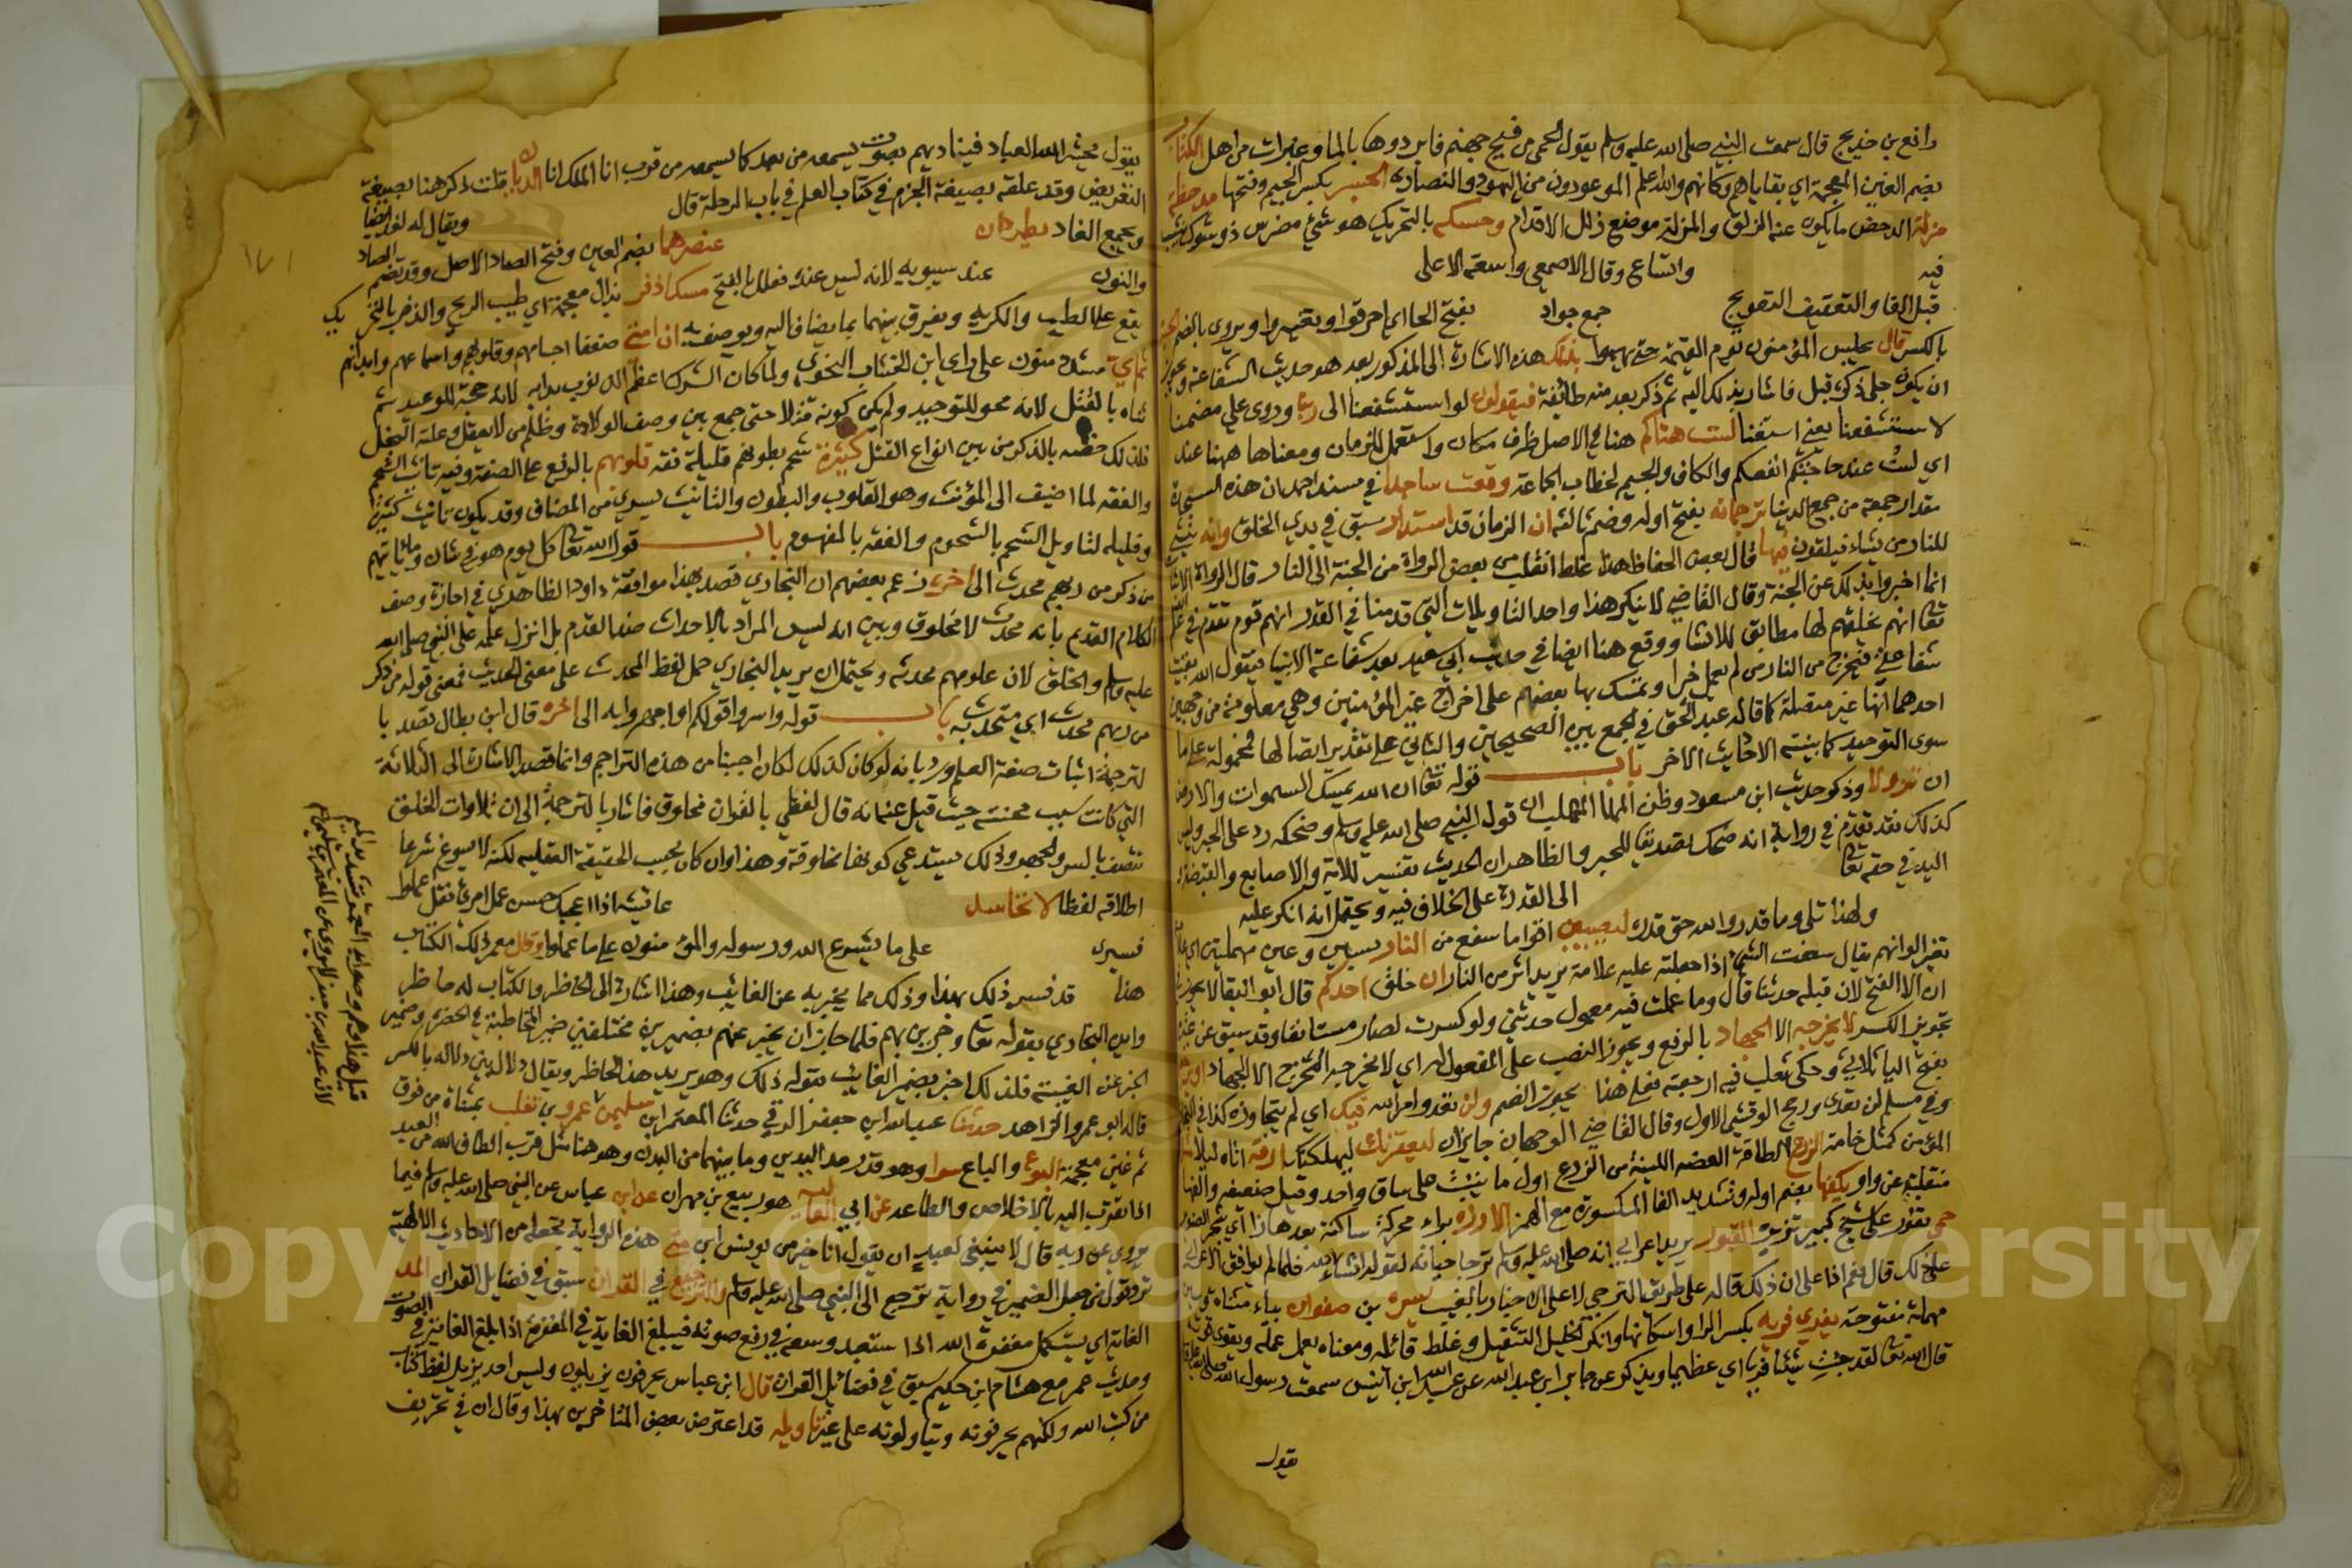 رافع بن خديج قال سمعت النبي صلى الله عليه وسلم يقول الحمى من فيح جهنم فابردوها بالماء وغبرات من اهل الكتاب
بضم الغين المعجمة اي بقاياهم وكانهم والله اعلم الموعودون من اليهود والنصارى الجسر بكسر الجيم وفتحها مدحضة
مزلة الدحض ما يكون عنه الزلق والمزلة موضع زلل الاقدام وحسكه بالتحريك هو شئ مضرس ذو شوك ينشب
فيه واتساع وقال الاصمعي واسعة الاعلى
قبل القا والتعقيف التعويج جمع جواد بفتح الحا اي احرقوا وتغيروا ويروى بالضم
بالكسر قال يحبس المؤمنون يوم القيمة حتى يهموا بذلك هذه الاشارة الى المذكور بعد هو حديث الشفاعة ويجوز
ان يكون جلي ذكره قبل فاشار بذلك اليه ثم ذكر بعد منه طائفة فيقولون لو استشفعنا الى ربنا وروى علي مضمنا
لاستشفعنا يعني استغنا لست هناكم هنا في الاصل ظرف مكان واستعمل للزمان ومعناها ههنا عند
اي لست عند حاجتكم انفعكم والكاف والجيم لخطاب الجماعة وقعت ساجدا في مسند احمد ان هذه السجدة
مقدار جمعة من جمع الدنيا ترجمانه بفتح اوله وضم ثالثه ان الزمان قد استدار سبق في بدي الخلق وانه ينشئ
للنار من يشاء فيلقون فيها قال بعض الحفاظ هذا غلط انقلب من بعض الرواة من الجنة الى النار قال الرواة الاثبات
انما اخبروا بذلك عن الجنة وقال القاضي لا ينكر هذا واحد التاويلات التي قدمنا في القدر انهم قوم تقدم في علم
تعالى انهم يخلقهم لها مطابق للانشا ووقع هنا ايضا في حديث ابي سعيد بعد شفاعة الانبيا فيقول الله بقيت
شفاعتي فيخرج من النار من لم يعمل خيرا وتمسك بها بعضهم على اخراج غير المؤمنين وهي معلومة من وجهين
احدهما انها غير متصلة كما قاله عبد الحق في الجمع بين الصحيحين والثاني على تقدير اتصالها فمحمولة على ما
سوى التوحيد كما بينته الاحاديث الاخر باب قوله تعالى ان الله يمسك السموات والارض
ان تزولا وذكر حديث ابن مسعود وظن المهلب ان قول النبي صلى الله عليه وسلم وضحكه رد على الحبر وليس
كذلك فقد تقدم في رواية انه ضحك تصديقا للحبر والظاهر ان الحديث تفسير للآية والاصابع والقبضة
اليد في حقه تعالى الى القدرة على الخلاف فيه ويحتمل انه انكر عليه
ولهذا تلى وما قدروا الله حق قدره ليصيبن اقواما سفع من النار بسين وعين مهملتين اي علامة
تغير الوانهم يقال سفعت الشئ اذا جعلته عليه علامة يريد اثر من النار ان خلق احدكم قال ابو البقا لا يجوز
ان الا الفتح لان قبله حدثنا قال وما عملت فيه معمول حدثني ولو كسرت لصار مستانفا وقد سبق عن غيره
تجويز الكسر لا يخرجه الا الجهاد بالرفع ويجوز النصب على المفعول له اي لا يخرجه المخرج الا الجهاد
بفتح اليا ثلاثي وحكى ثعلب فيه ارجعته فعلى هنا يجوز الضم ولن تعدو امر الله فيك اي لم يتجاوزه كذا في البخاري
وفي مسلم لن تعدى ورجح الوقشي الاول وقال القاضي الوجهان جايزان ليعقرنك ليهلكنك
المؤمن كمثل خامة الزرع الطاقة الغضه اللينة من الزرع اول ما ينبت على ساق واحد وقيل ضعيفه والفها
منقلبة عن واو يكفها بضم اوله وتشديد الفا المكسورة مع الهمز الارزة براء محركة ساكنة بعدها زا
حمى تفور على شيخ كبير تزيره القبور يريد اعرابي انه صلى الله عليه وسلم ترجا حياته لقوله ان شاء الله فلما لم يوافق الاعرابي
على ذلك قال فنعم اذا على ان ذلك قاله على طريق الترجي لا على الاخبار بالغيب بسره بن صفوان بياء مثناة وسين
مهملة مفتوحة يفري فريه بكسر الرا واسكانها وانكر الخليل التثقيل وغلط قائله ومعناه يعمل عمله ويقوى قوته
قال الله تعالى لقد جئت شيئا فريا اي عظيما ويذكر عن جابر ابن عبد الله عن عبد الله ابن انيس سمعت رسول الله صلى الله عليه
يقول
يقول يحشر الله العباد فيناديهم بصوت يسمعه من بعد كما يسمعه من قرب انا الملك انا الديان قلت ذكر هنا بصيغة
التعريض وقد علقه بصيغة الجزم في كتاب العلم في باب الرحلة قال ويقال له لغد ايضا
ويجمع الغاد بطيرحان عنصرهما بضم العين وفتح الصاد الاصل وقد تضم الصاد
والنون عند سيبويه لانه ليس عنده فعلل بالفتح مسكا ذفر بذال معجمة اي طيب الريح والذفر بالتحريك
يقع على الطيب والكريه ويفرق بينهما بما يضاف اليه ويوصف به ان امتي ضعفا اجسامهم وقلوبهم واسماعهم وابدانهم
ثم اي مشدد منون على راي ابن الخشاب النحوي ولما كان الشرك اعظم الذنوب بدا به لانه جحد للتوحيد ثم
ثناه بالقتل لانه محو للتوحيد ولم يكن كونه قتلا حتى جمع بين وصف الولادة وظلم من لا يعقل وعلة البخل
فلذلك خصه بالذكر من بين انواع القتل كثيرة شحم بطونهم قليلة فقه قلوبهم بالرفع على الصفة وفيه تانيث الشحم
والفقه لما اضيف الى المؤنث وهو القلوب والبطون والتانيث يسري من المضاف وقد يكون تانيث كثيرة
وقليله لتاويل الشحم بالشحوم والفقه بالمفهوم باب قول الله تعالى كل يوم هو في شان وما ياتيهم
من ذكر من ربهم محدث الى اخره زعم بعضهم ان البخاري قصد بهذا موافقة داود الظاهري في اجازة وصف
الكلام القديم بانه محدث لا مخلوق وبين انه ليس المراد بالاحداث ضد القدم بل انزل علمه على النبي صلى الله
عليه وسلم والخلق لان علومهم محدثه ويحتمل ان يريد البخاري حمل لفظ المحدث على معنى الحديث فمعنى قوله من ذكر
من ربهم محدث اي متحدث به باب قوله واسروا قولكم او اجهروا به الى اخره قال ابن بطال قصد با
لترجمة اثبات صفة العلم ورد بانه لو كان كذلك لكان اجنبيا من هذه التراجم وانما قصد الاشارة الى التلاتة
التي كانت سبب محنته حيث قيل عنه انه قال لفظي بالقران مخلوق فاشار بالترجمة الى ان تلاوات الخلق
تتصف بالسر والجهر وذلك يستدعي كونها مخلوقة وهذا وان كان بحسب الحقيقة العقليه لكنه لا يسوغ شرعا
اطلاقه لفظا لا تحاسد عائشه اذا اعجبك حسن عمل امرئ فقل اعملوا
فسيرى على ما يشرع الله ورسوله والمؤمنون على ما عملوا وقال معمر ذلك الكتاب
هذا قد فسر ذلك بهذا وذلك مما يخبر به عن الغائب وهذا اشارة الى الحاظر والكتاب له حاظر
واين البخاري بقوله تعالى وجرين بهم فلما جاز ان يخبر عنهم بضميرين مختلفين ضمير المخاطبة في الحضرة وضمير
الخبر عن الغيبة فلذلك اخبر بضمير الغائب بقوله ذلك وهو يريد هذا الحاظر ويقال دلال بين دلاله بالكسر
قاله ابو عمرو الزاهد حدثنا عبد الله ابن جعفر الرقي حدثنا المعتمر ابن سليمن عمرو بن تغلب بمثناة من فوق
ثم غين معجمة البوع والباع سوا وهو قدر مد اليدين وما بينهما من البدن وهو هنا مثل قرب الطاف الله من العبد
اذا تقرب اليه بالاخلاص والطاعه عن ابي العالية هو ربيع بن مهران عن ابن عباس عن النبي صلى الله عليه وسلم فيما
يروي عن ربه قال لا ينبغي لعبد ان يقول انا خير من يونس ابن متى هذه الرواية تجعله من الاحاديث الالهية
ترد قول من جعل الضمير في رواية ترجع الى النبي صلى الله عليه وسلم والترجيع في القران سبق في فضايل القران المد
الغاية اي يستكمل مغفرة الله اذا استنفد وسعه في رفع صوته فيبلغ الغاية في المغفرة اذا بلغ الغاية في الصوت
وحديث عمر مع هشام ابن حكيم سبق في فضائل القران قال ابن عباس يحرفون يزيلون وليس احد يزيل لفظ كتاب
من كتب الله ولكنهم يحرفونه ويتاولونه على غير تاويله قد اعترض بعض المتاخرين بهذا وقال ان في تحريف
١٧١
Copyright © King Saud University